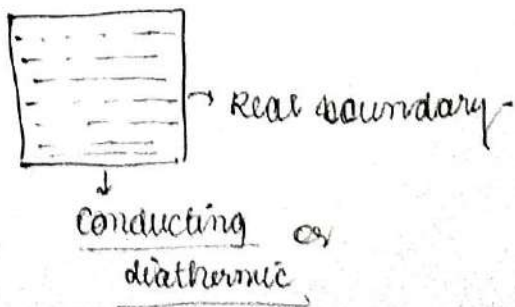 → Real boundary -
Conducting or
diathermic